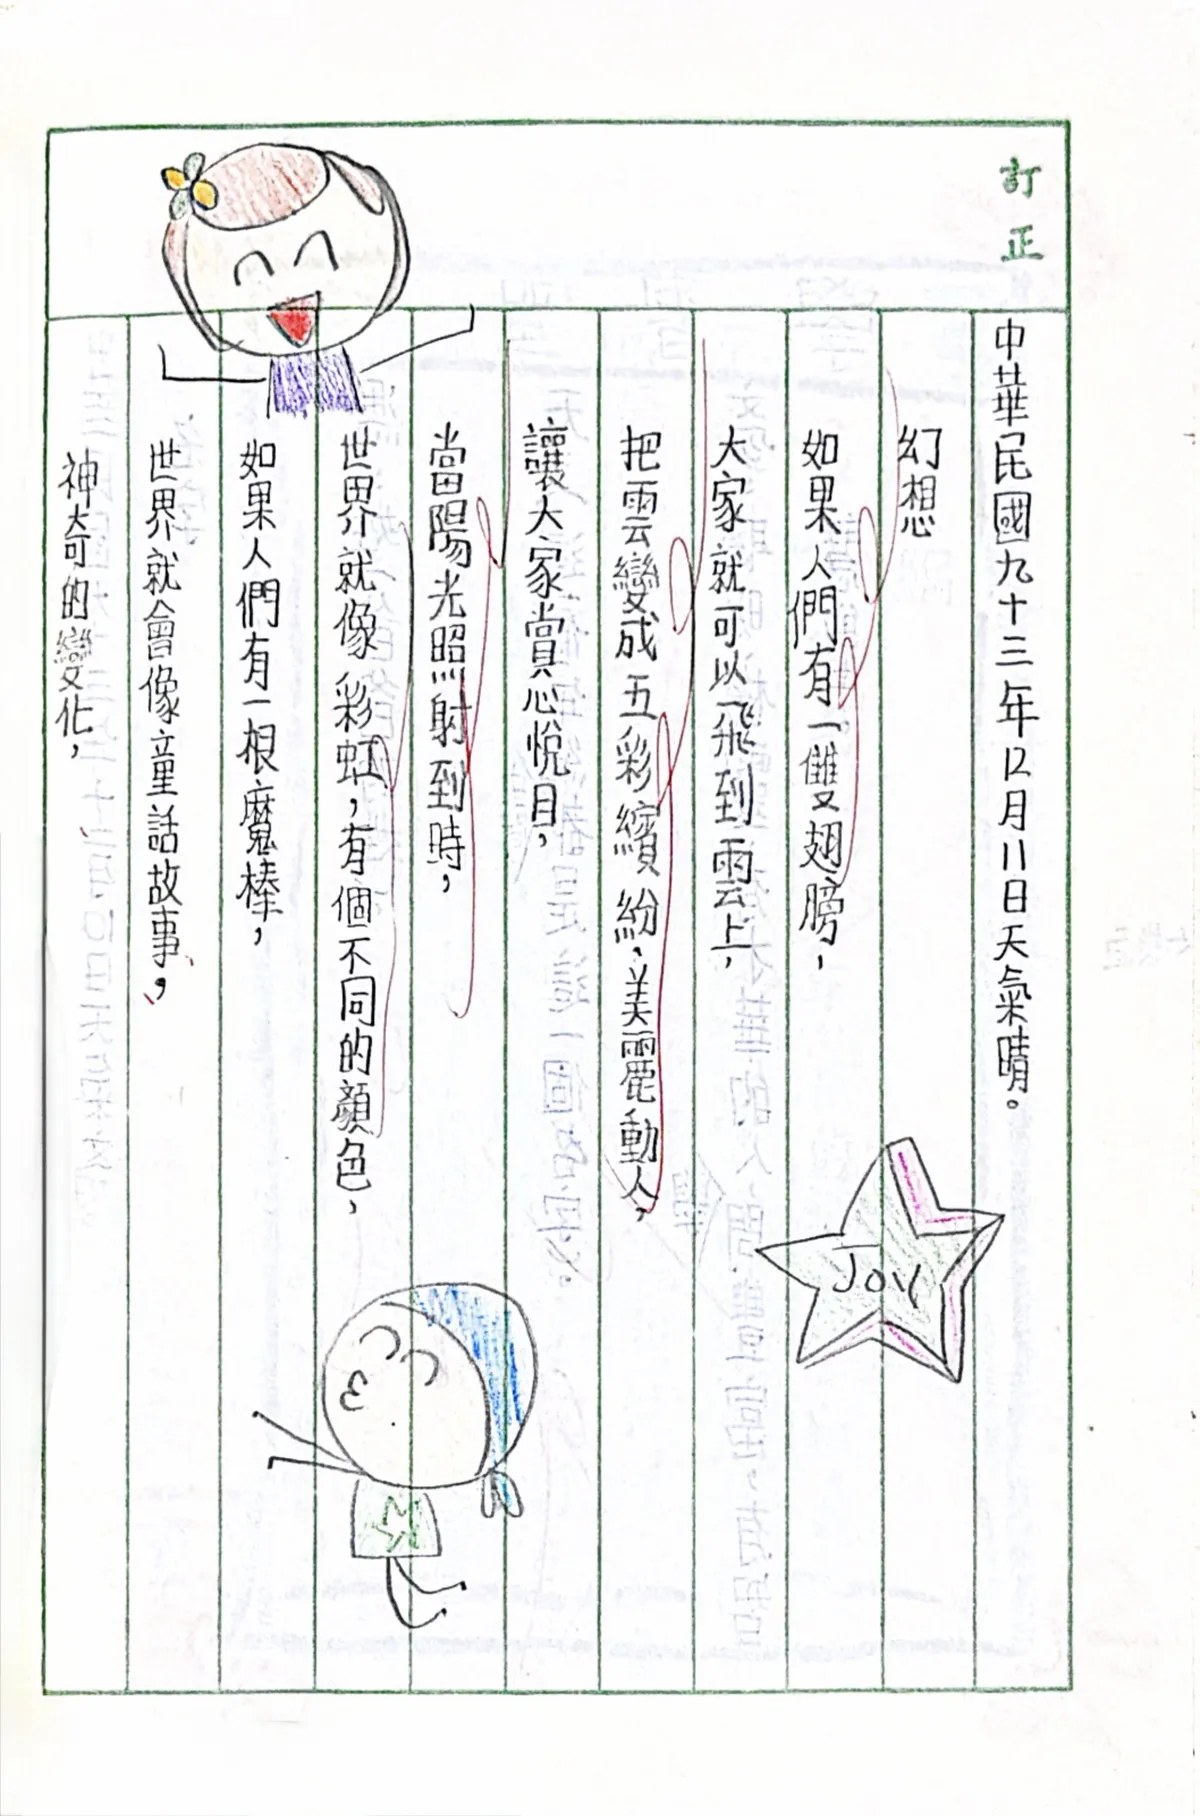 訂正
中華民國九十三年12月11日天氣晴。
幻想
如果人們有一雙翅膀，
大家就可以飛到雲上，
把雲變成五彩繽紛，美麗動人，
讓大家賞心悅目，
當陽光照射到時，
世界就像彩虹，有個不同的顏色，
如果人們有一根魔棒，
世界就會像童話故事，
神奇的變化，
JOY